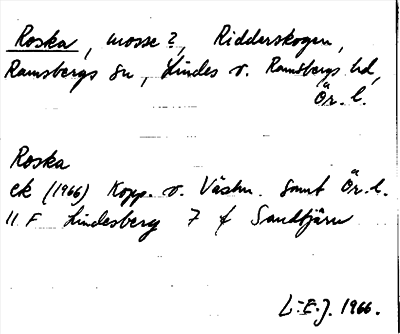 Roska, mosse?, Ridderskogen,
Ramsbergs sn, Lindes o. Ramsbergs hd,
Ör. l.
Roska
ek (1966) Kopp. o. Västm. samt Ör. l.
11 F Lindesberg 7 f Sandtjärn
L-E.J. 1966.